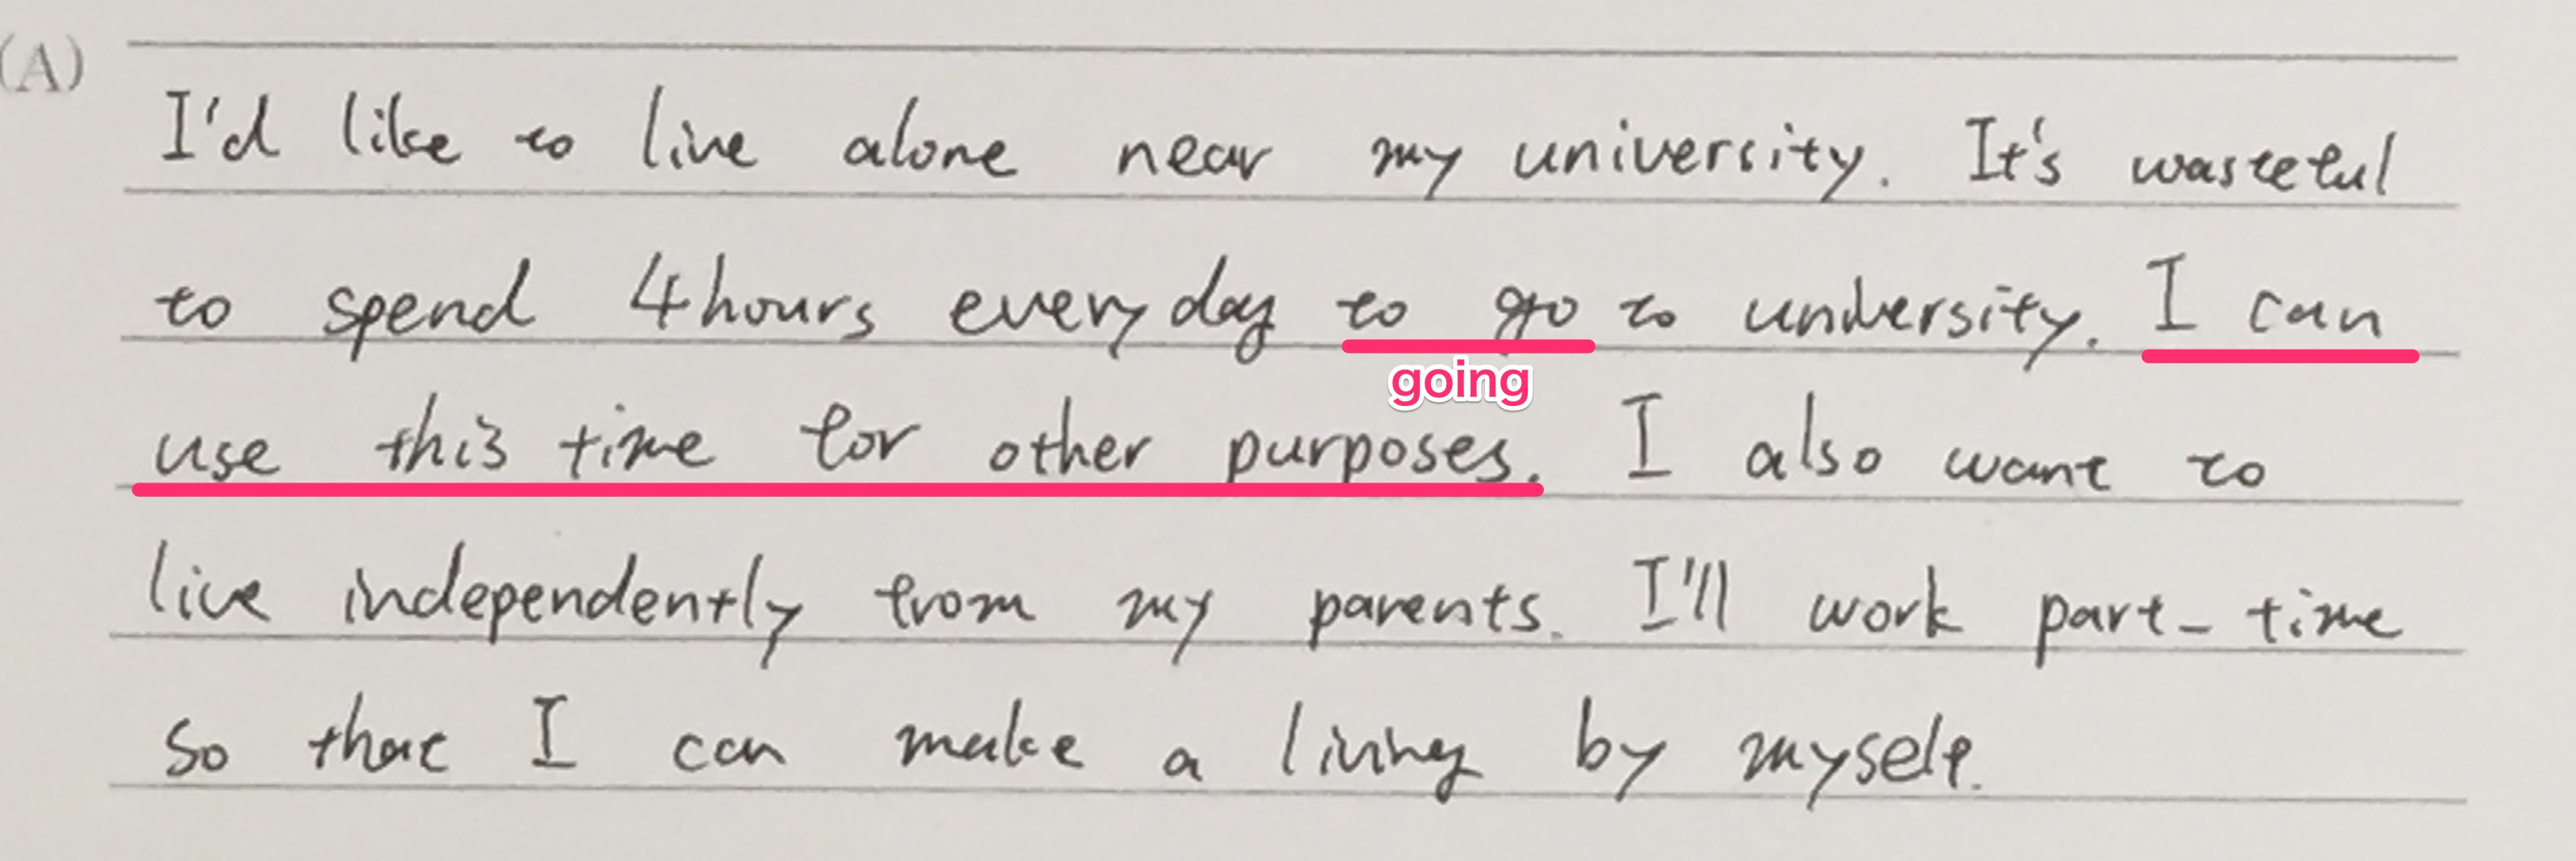 (A)
I'd like to live alone near my university. It's wasteful
to spend 4 hours every day to go to university. I can
going
use this time for other purposes. I also want to
live independently from my parents. I'll work part-time
so that I can make a living by myself.